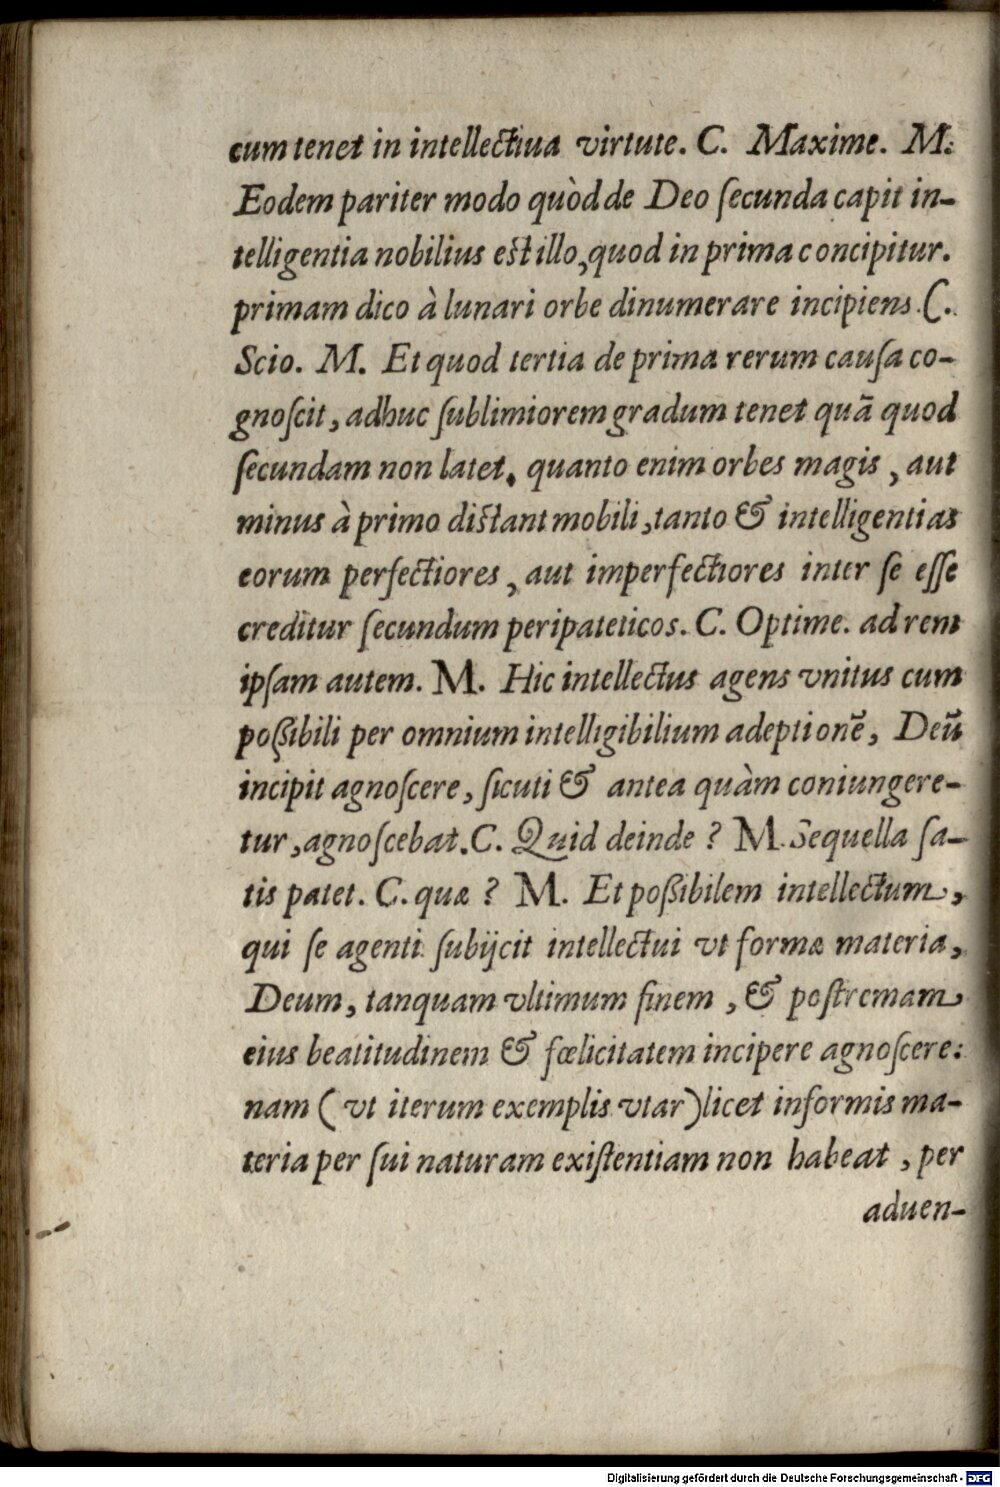 cum tenet in intellectiua virtute. C. Maxime. M.
Eodem pariter modo quòd de Deo ſecunda capit in-
telligentia nobilius eſt illo, quod in prima concipitur.
primam dico à lunari orbe dinumerare incipiens. C.
Scio. M. Et quod tertia de prima rerum cauſa co-
gnoſcit, adhuc ſublimiorem gradum tenet quã quod
ſecundam non latet. quanto enim orbes magis, aut
minus à primo diſtant mobili, tanto & intelligentias
eorum perfectiores, aut imperfectiores inter ſe eſſe
creditur ſecundum peripateticos. C. Optime. ad rem
ipſam autem. M. Hic intellectus agens vnitus cum
poßibili per omnium intelligibilium adeptionẽ, Deũ
incipit agnoſcere, ſicuti & antea quàm coniungere-
tur, agnoſcebat. C. Quid deinde? M. Sequella ſa-
tis patet. C. quæ? M. Et poßibilem intellectum,
qui ſe agenti ſubijcit intellectui vt formæ materia,
Deum, tanquam vltimum finem, & poſtremam
eius beatitudinem & fœlicitatem incipere agnoſcere:
nam ( vt iterum exemplis vtar) licet informis ma-
teria per ſui naturam exiſtentiam non habeat, per
aduen-
Digitalisierung gefördert durch die Deutsche Forschungsgemeinschaft - DFG